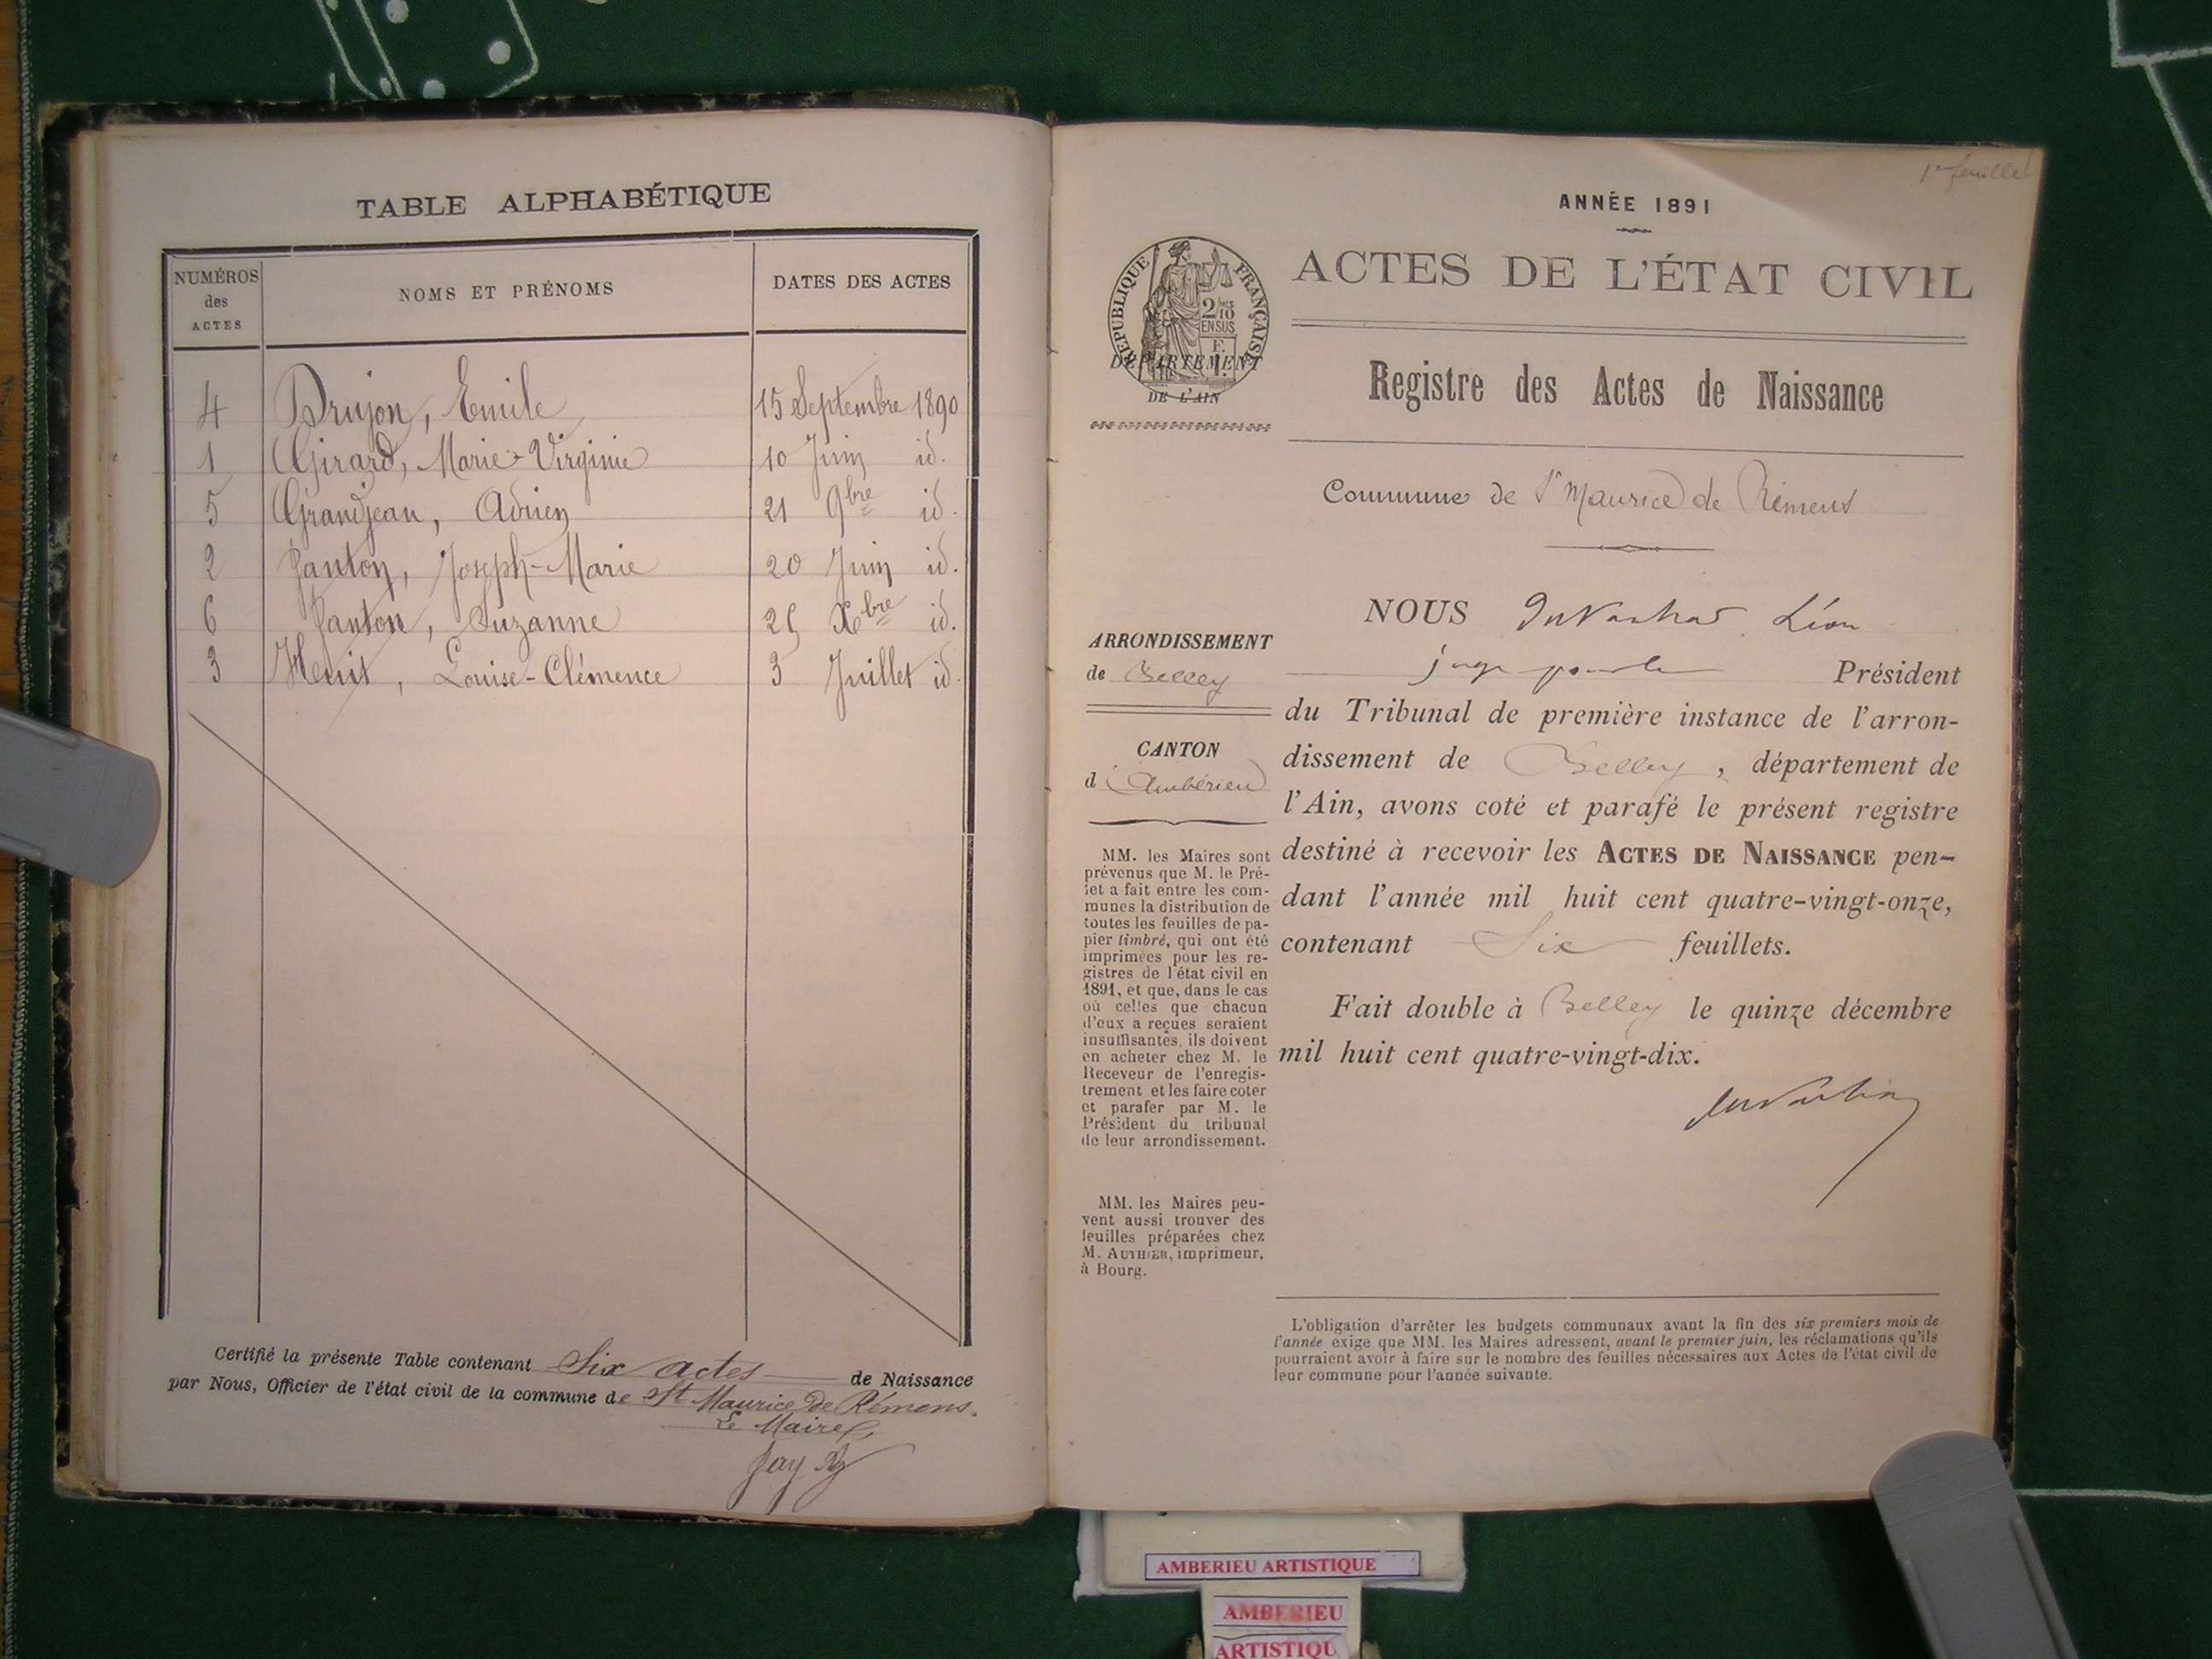 TABLE ALPHABÉTIQUE
NUMÉROS des ACTES
NOMS ET PRÉNOMS
DATES DES ACTES
4 Drujon, Emile 15 Septembre 1890
1 Girard, Marie-Virginie 10 Juin id.
5 Grandjean, Adrien 21 9bre id.
2 Janton, Joseph-Marie 20 Juin id.
6 Janton, Suzanne 25 Xbre id.
3 Louise-Clémence 3 Juillet id.
Certifié la présente Table contenant Six actes de Naissance
par Nous, Officier de l'état civil de la commune de St Maurice de Rémens.
Le Maire,
Jay
1er feuillet
ANNÉE 1891
RÉPUBLIQUE FRANÇAISE
2/10
EN SUS
DÉPARTEMENT
DE L'AIN
ACTES DE L'ÉTAT CIVIL
Registre des Actes de Naissance
Commune de St Maurice de Rémens
ARRONDISSEMENT
de Belley
CANTON
d'Ambérieu
MM. les Maires sont
prévenus que M. le Pré-
fet a fait entre les com-
munes la distribution de
toutes les feuilles de pa-
pier timbré, qui ont été
imprimées pour les re-
gistres de l'état civil en
1891, et que, dans le cas
où celles que chacun
d'eux a reçues seraient
insuffisantes, ils doivent
en acheter chez M. le
Receveur de l'enregis-
trement et les faire coter
et parafer par M. le
Président du tribunal
de leur arrondissement.
MM. les Maires peu-
vent aussi trouver des
feuilles préparées chez
M. AUTHIER, imprimeur,
à Bourg.
NOUS Léon
juge pour le Président
du Tribunal de première instance de l'arron-
dissement de Belley, département de
l'Ain, avons coté et parafé le présent registre
destiné à recevoir les ACTES DE NAISSANCE pen-
dant l'année mil huit cent quatre-vingt-onze,
contenant Six feuillets.
Fait double à Belley le quinze décembre
mil huit cent quatre-vingt-dix.
L'obligation d'arrêter les budgets communaux avant la fin des six premiers mois de
l'année exige que MM. les Maires adressent, avant le premier juin, les réclamations qu'ils
pourraient avoir à faire sur le nombre des feuilles nécessaires aux Actes de l'état civil de
leur commune pour l'année suivante.
AMBERIEU ARTISTIQUE
AMBERIEU
ARTISTIQU